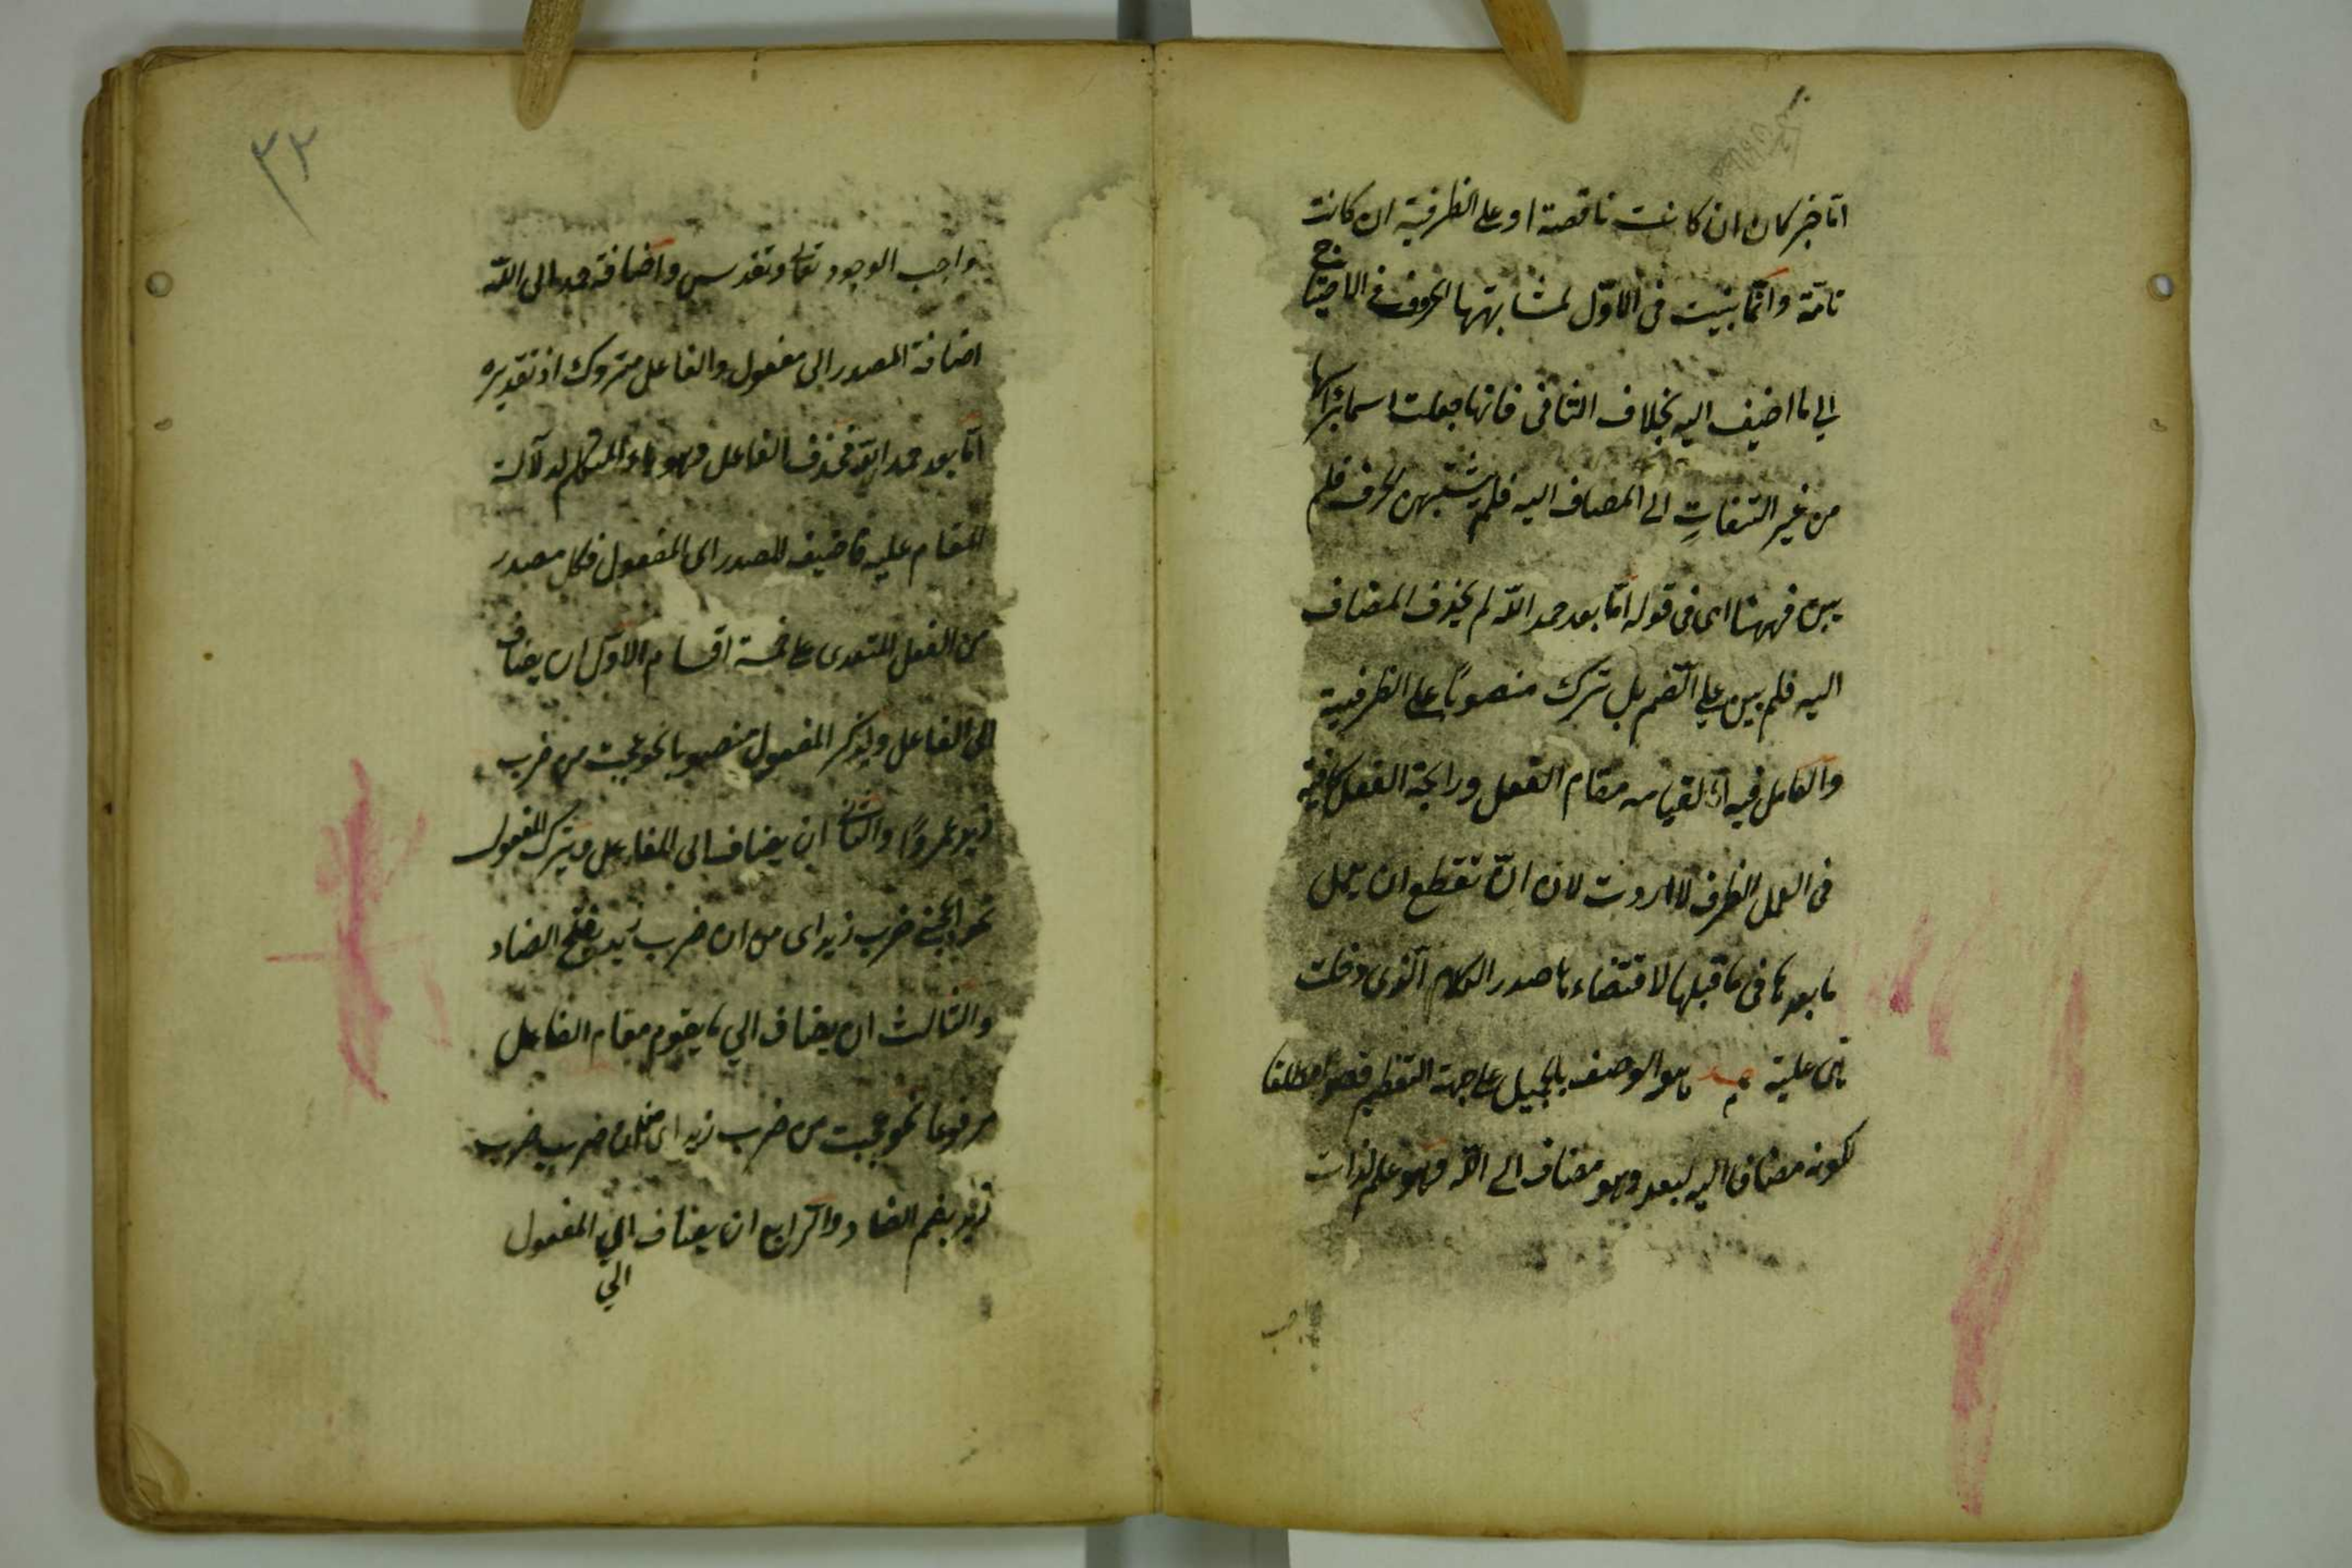 اما خبر كان ان كانت ناقصة او على الظرفية ان كانت
تامة وانما بنيت فى الاول لمشابهتها الحروف فى الاحتياج
الي ما اضيف اليه بخلاف الثانى فانها جعلت اسما برأسها
من غير التفات الى المضاف اليه فلم يشتبهن الحرف فلم
يبن فههنا اى فى قوله اما بعد حمد الله لم يحذف المضاف
اليه فلم يبن علي الضم بل ترك منصوبا على الظرفية
والعامل فيه اما لقيامه مقام الفعل ورايحة الفعل كافية
فى العمل الظرف لان ان تقطع ان يعمل
ما بعدها فى ما قبلها لاقتضاءها صدر الكلام الذى دخلت
هى عليه حمد هو الوصف بالجميل على جهة التعظيم مطلقا
لكونه مضافا اليه لبعد وهو مضاف الى الله وهو علم لذات
واجب
٣٢
واجب الوجود تعالى وتقدس واضافة حمد الى الله
اضافة المصدر الى مفعول والفاعل متروك اذ تقديره
اما بعد حمد الله فحذف الفاعل وهو ياء المتكلم لدلالة
المقام عليه فاضيف المصدر الى المفعول فكل مصدر
من الفعل المتعدى على خمسة اقسام الاول ان يضاف
الى الفاعل ويذكر المفعول منصوبا نحو عجبت من ضرب
زيد عمروًا والثانى ان يضاف الى الفاعل ويترك المفعول
نحو اعجبنى ضرب زيد اى من ان ضرب زيد بفتح الضاد
والثالث ان يضاف الي ما يقوم مقام الفاعل
مرفوعا نحو عجبت من ضرب زيد اى من ان ضرب
زيد بضم الضاد والرابع ان يضاف الي المفعول
الي